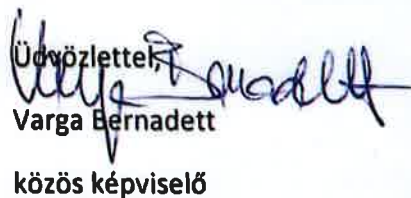 Üdvözlettel,
Varga Bernadett
Varga Bernadett
közös képviselő